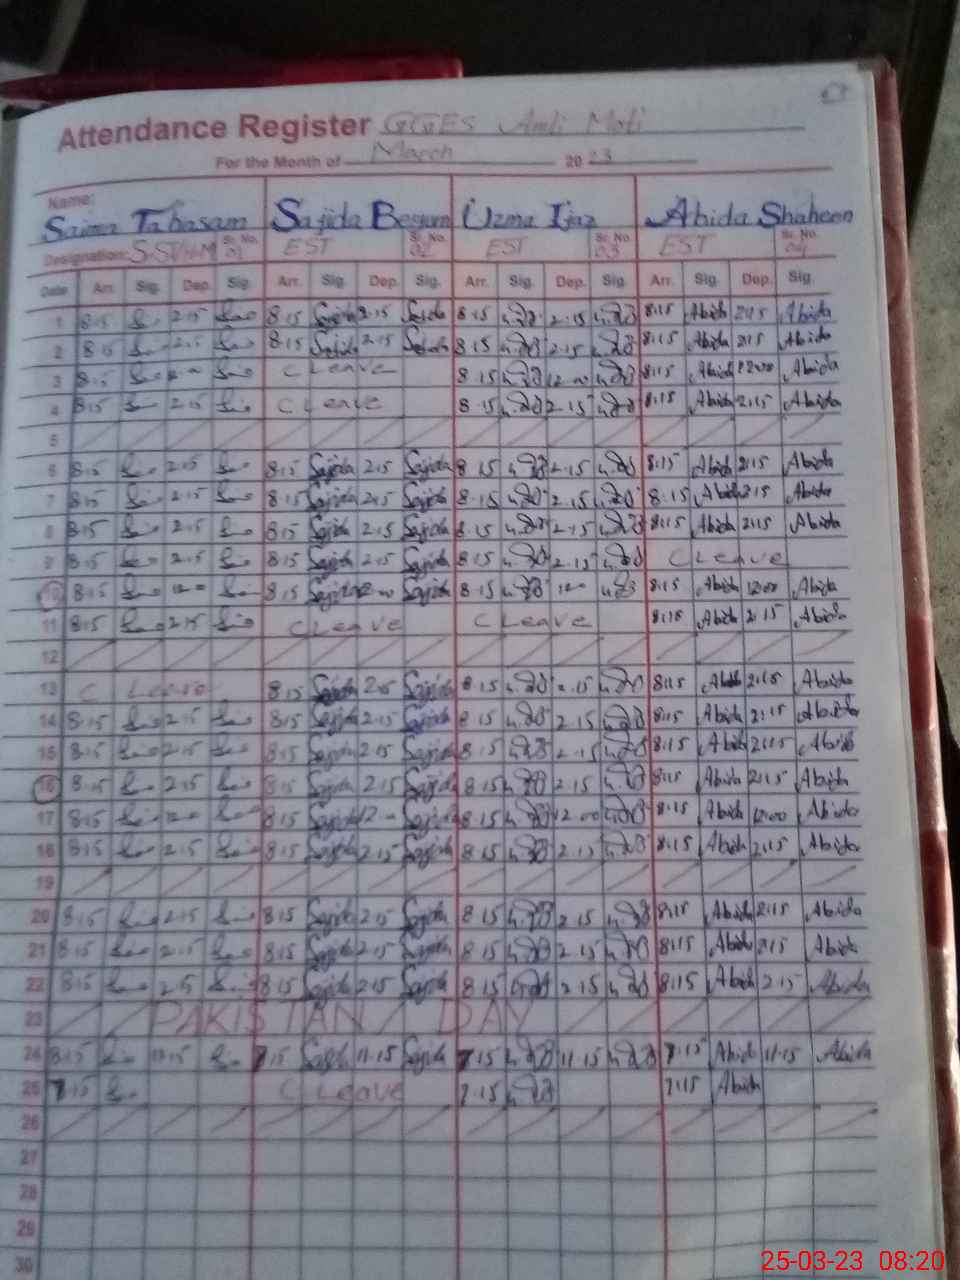 Attendance Register GGES Amli Moti
For the Month of March 2023
Name:
Saima Tabasam Sajida Begum Uzma Ijaz Abida Shaheen
Designation: Sr. No. 01 EST Sr. No. 02 EST Sr. No. 03 EST Sr. No. 04
Date Arr. Sig. Dep. Sig. Arr. Sig. Dep. Sig. Arr. Sig. Dep. Sig. Arr. Sig. Dep. Sig.
1 8:15 2:15 8:15 Sajida 2:15 Sajida 8:15 2:15 8:15 Abida 2:15 Abida
2 8:15 2:15 8:15 Sajida 2:15 Sajida 8:15 2:15 8:15 Abida 2:15 Abida
3 8:15 12:00 C Leave 8:15 12:00 8:15 Abida 12:00 Abida
4 8:15 2:15 C Leave 8:15 2:15 8:15 Abida 2:15 Abida
5
6 8:15 2:15 8:15 Sajida 2:15 Sajida 8:15 2:15 8:15 Abida 2:15 Abida
7 8:15 2:15 8:15 Sajida 2:15 Sajida 8:15 2:15 8:15 Abida 2:15 Abida
8 8:15 2:15 8:15 Sajida 2:15 Sajida 8:15 2:15 8:15 Abida 2:15 Abida
9 8:15 2:15 8:15 Sajida 2:15 Sajida 8:15 2:15 C Leave
10 8:15 12:00 8:15 Sajida 12:00 Sajida 8:15 12:00 8:15 Abida 12:00 Abida
11 8:15 2:15 C Leave C Leave 8:15 Abida 2:15 Abida
12
13 C Leave 8:15 Sajida 2:15 Sajida 8:15 2:15 8:15 Abida 2:15 Abida
14 8:15 2:15 8:15 Sajida 2:15 Sajida 8:15 2:15 8:15 Abida 2:15 Abida
15 8:15 2:15 8:15 Sajida 2:15 Sajida 8:15 2:15 8:15 Abida 2:15 Abida
16 8:15 2:15 8:15 Sajida 2:15 Sajida 8:15 2:15 8:15 Abida 2:15 Abida
17 8:15 12:00 8:15 Sajida 12:00 Sajida 8:15 12:00 8:15 Abida 12:00 Abida
18 8:15 2:15 8:15 Sajida 2:15 Sajida 8:15 2:15 8:15 Abida 2:15 Abida
19
20 8:15 2:15 8:15 Sajida 2:15 Sajida 8:15 2:15 8:15 Abida 2:15 Abida
21 8:15 2:15 8:15 Sajida 2:15 Sajida 8:15 2:15 8:15 Abida 2:15 Abida
22 8:15 2:15 8:15 Sajida 2:15 Sajida 8:15 2:15 8:15 Abida 2:15 Abida
23 PAKISTAN DAY
24 11:15 7:15 Sajida 11:15 Sajida 7:15 11:15 7:15 Abida 11:15 Abida
25 7:15 C Leave 7:15 7:15 Abida
26
27
28
29
30
25-03-23 08:20